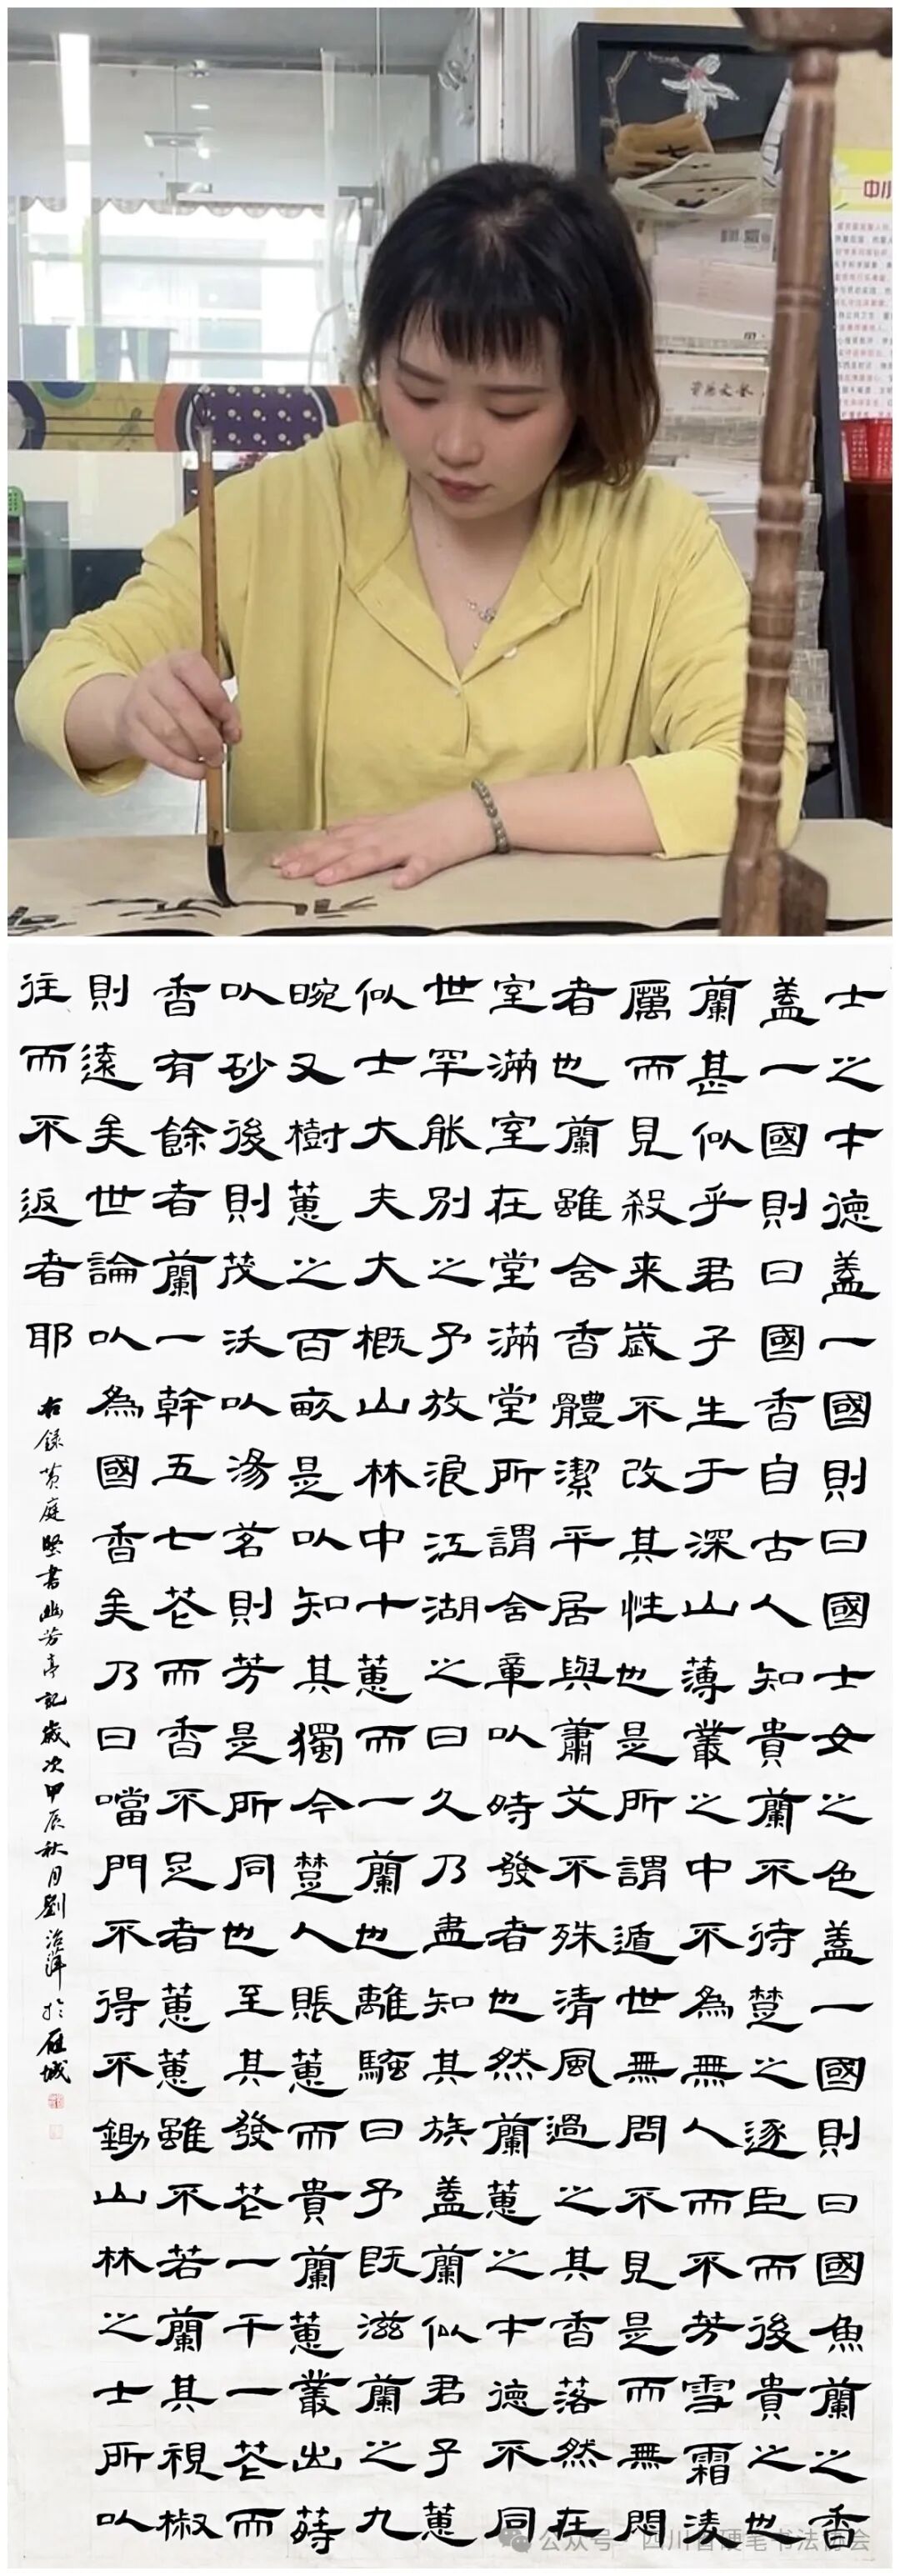 中小
士之才德盖一國則曰國士女之色盖一國則曰國魚蘭之香
盖一國則曰國香自古人知貴蘭不待楚之逐臣而後貴之也
蘭甚似乎君子生于深山薄叢之中不為無人而不芳雪霜凌
厲而見殺来歲不改其性也是所謂遁世無問不見是而無悶
者也蘭雖含香體潔平居與蕭艾不殊清風過之其香落然在
室滿室在堂滿堂所謂含章以時發者也然蘭蕙之才德不同
世罕能别之予放浪江湖之日久乃盡知其族盖蘭似君子蕙
似士大夫大概山林中十蕙而一蘭也離騷曰予既滋蘭之九
畹又樹蕙之百畝是以知其獨今楚人賬蕙而貴蘭蕙叢出蒔
以砂後則茂沃以湯茗則芳是所同也至其發花一干一花而
香有餘者蘭一幹五七花而香不足者蕙蕙雖不若蘭其視椒
則遠矣世論以為國香矣乃曰噹門不得不鋤山林之士所以
往而不返者耶
右錄黄庭堅書幽芳亭記歲次甲辰秋月劉治萍於雁城
公众号·四川省硬笔书法协会